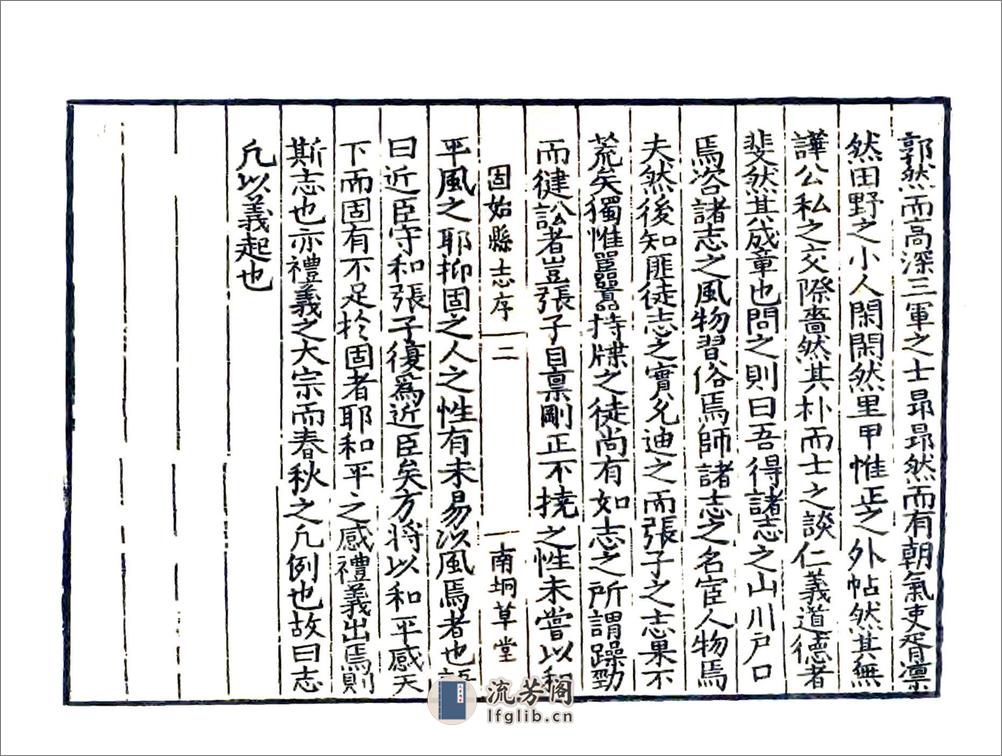 郭然而高深三軍之士昻昻然而有朝氣吏胥凛
然田野之小人閑閑然里甲惟正之外帖然其無
譁公私之交際嗇然其朴而士之談仁義道德者
斐然其成章也問之則曰吾得諸志之山川戸口
焉咨諸志之風物習俗焉師諸志之名宦人物焉
夫然後知匪徒志之實允迪之而張子之志果不
荒矣獨惟嚚嚚持牒之徒尚有如志之所謂躁勁
而健訟者豈張子自稟剛正不撓之性未嘗以和
固始縣志序 二 南垌草堂
平風之耶抑固之人之性有未易以風焉者也語
曰近臣守和張子復爲近臣矣方將以和平感天
下而固有不足扵固者耶和平之感禮義出焉則
斯志也亦禮義之大宗而春秋之凡例也故曰志
凡以義起也
流芳阁
lfglib.cn